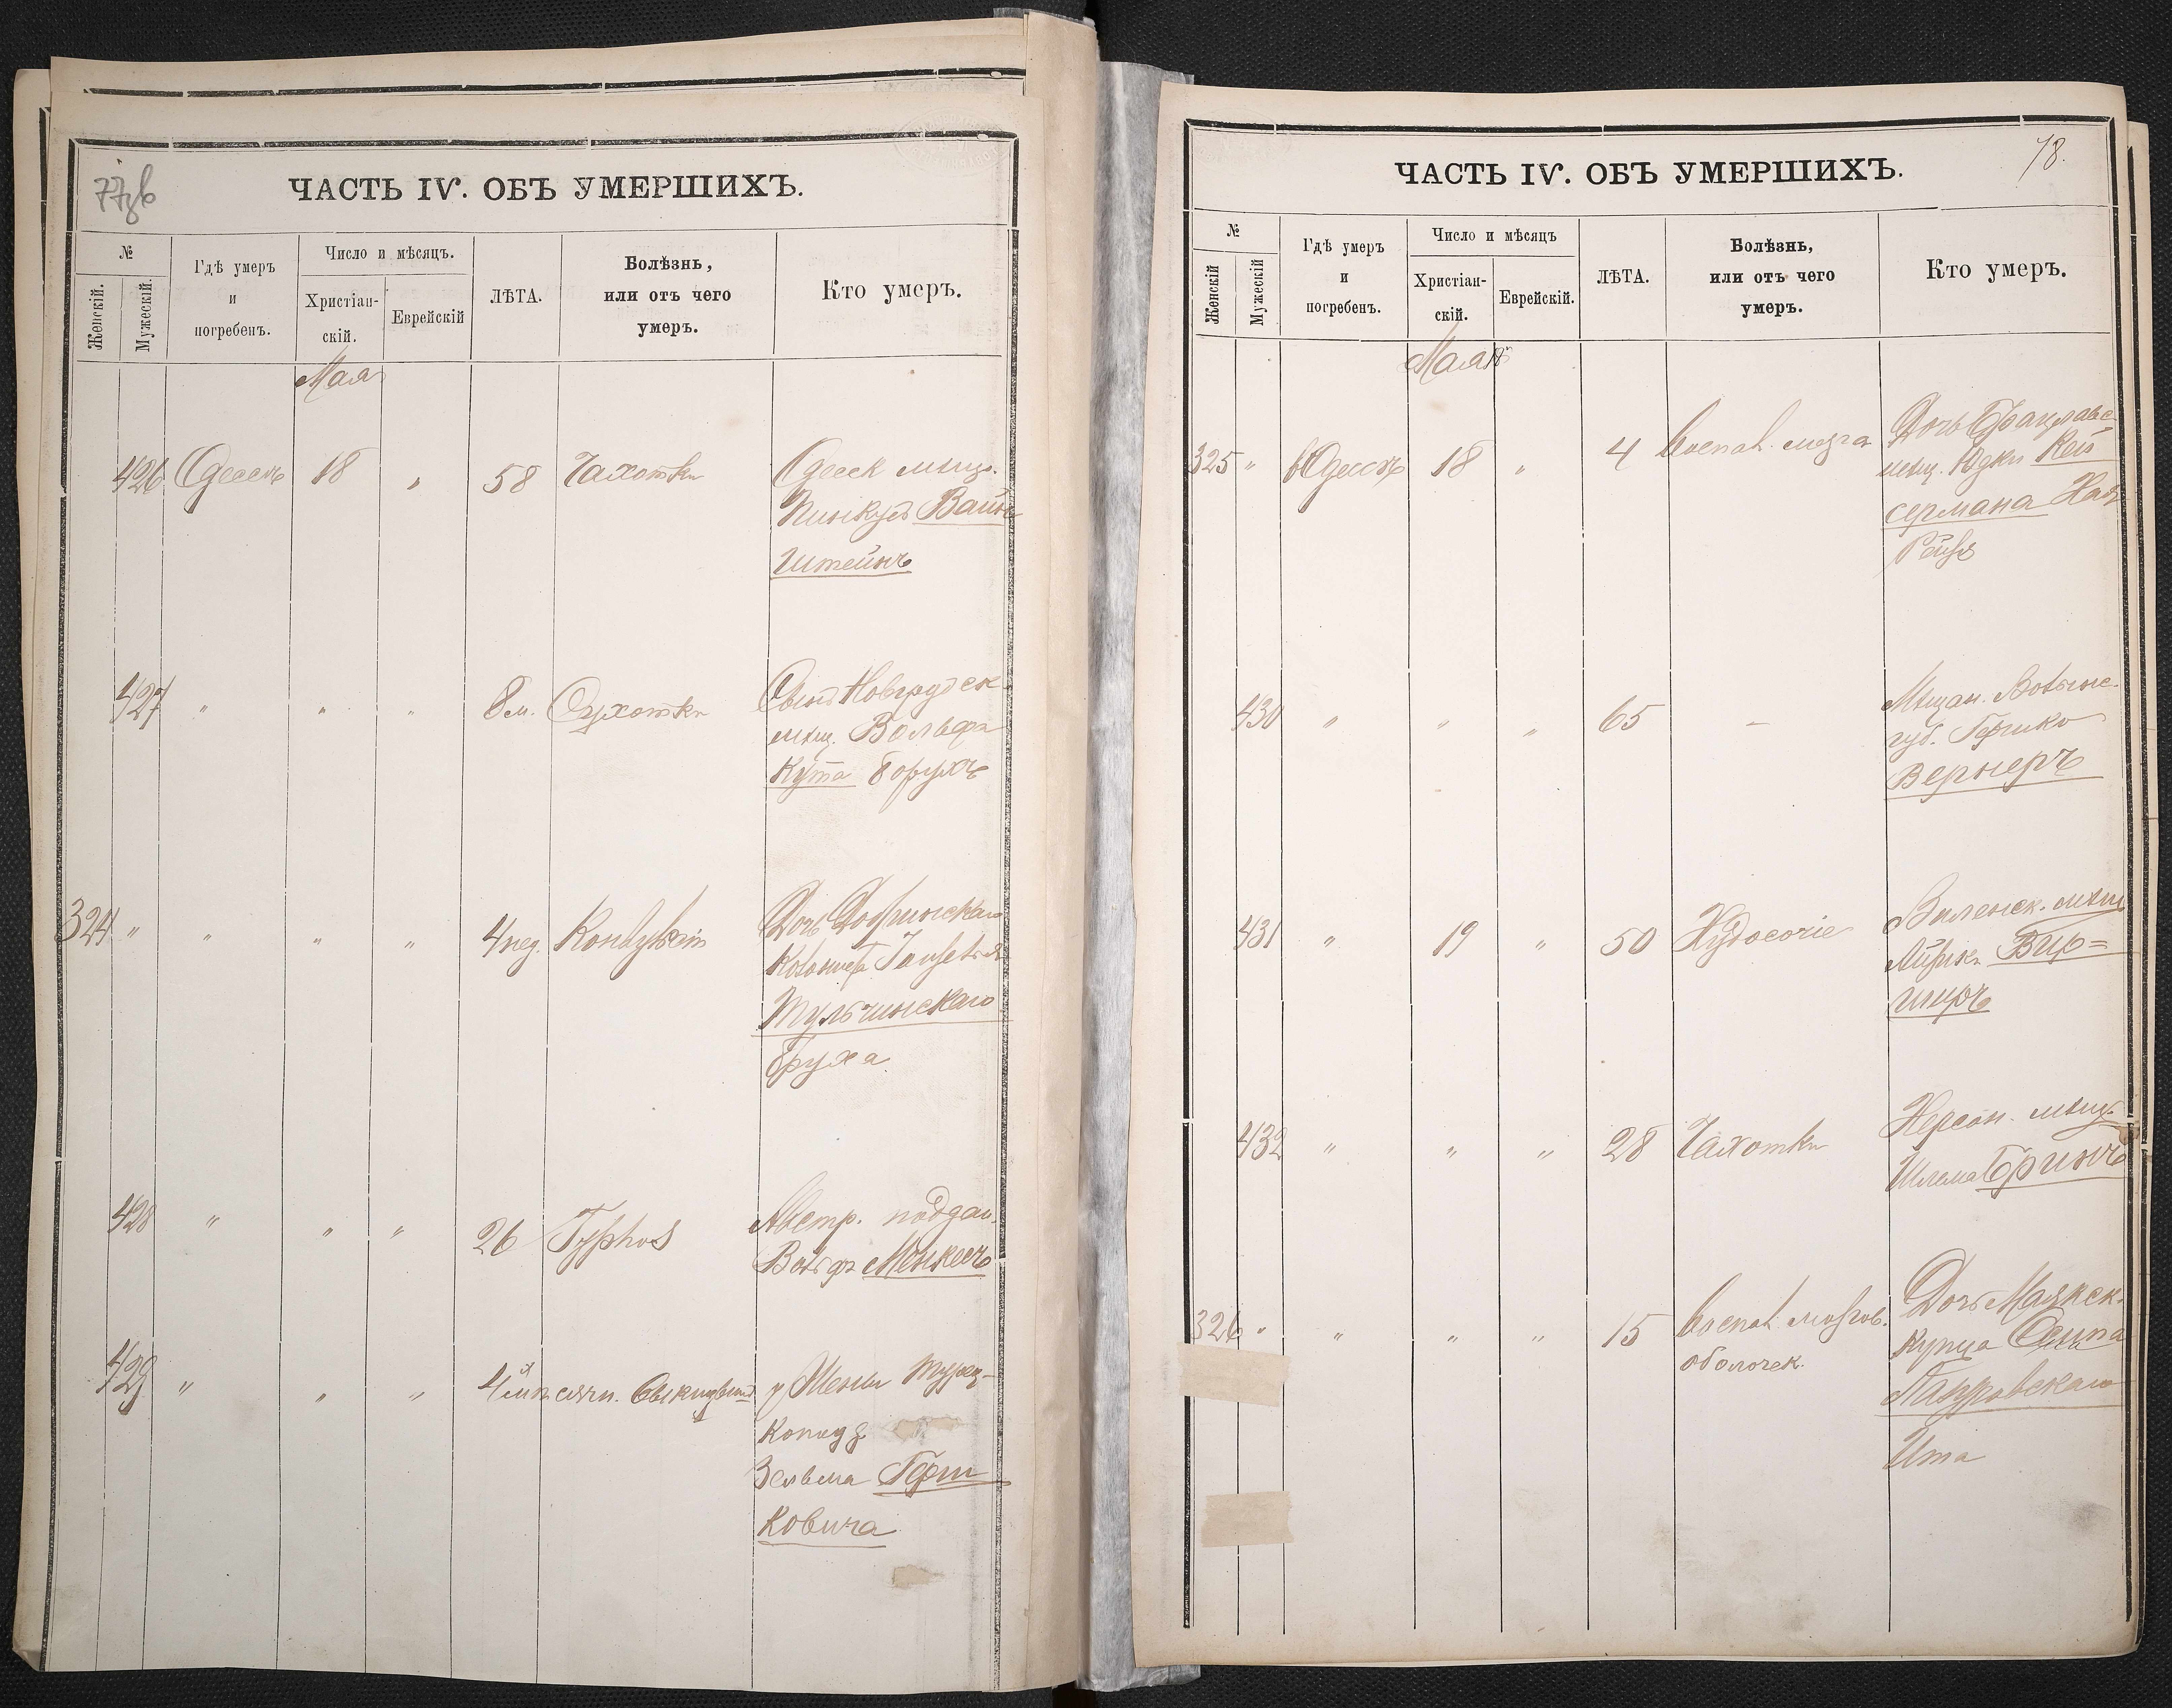 77об
ЧАСТЬ IV. ОБЪ УМЕРШИХЪ.
№
Женскій.
Мужескій.
Гдѣ умеръ
и
погребенъ.
Число и мѣсяцъ.
Христіан-
скій.
Еврейскій
ЛѢТА.
Болѣзнь,
или отъ чего
умеръ.
Кто умеръ.
Мая
426 Одессѣ 18 " 58 Чахотки Одесск мѣщ.
Пинкусъ Вайн
штейнъ
427 " " " 8 м. Сухотки Сынъ Новгрудск
мѣщ. Вольфа
Кута Борухъ
324 " " " " 4 нед. Дочь
Тульчинскаго
Бруха
428 " " " 26 Typhus Австр. поддан.
Вольф Менкесъ
429 " " " 4 у Жены Турец-
Герш
ковича
78.
ЧАСТЬ IV. ОБЪ УМЕРШИХЪ.
№
Женскій
Мужескій
Гдѣ умеръ
и
погребенъ.
Число и мѣсяцъ
Христіан-
скій.
Еврейскій.
ЛѢТА.
Болѣзнь,
или отъ чего
умеръ.
Кто умеръ.
Мая
325 " Одессѣ 18 " 4 воспал. мозга Дочь Брацлавс
мѣщ. Юдки Кей
сермана Хая
Рейзя
430 " " " 65 – Мѣщан. Волынс.
губ. Гершко
Вернеръ
431 " 19 " 50 Худосочіе Виленск. мѣщ
Бир=
ширъ
432 " " " 28 Чахотки Херсон. мѣщ.
Шлема Бринъ
326 " " " " 15 воспал. мозгов.
оболочек.
Дочь Маякск.
купца Осипа
Ита